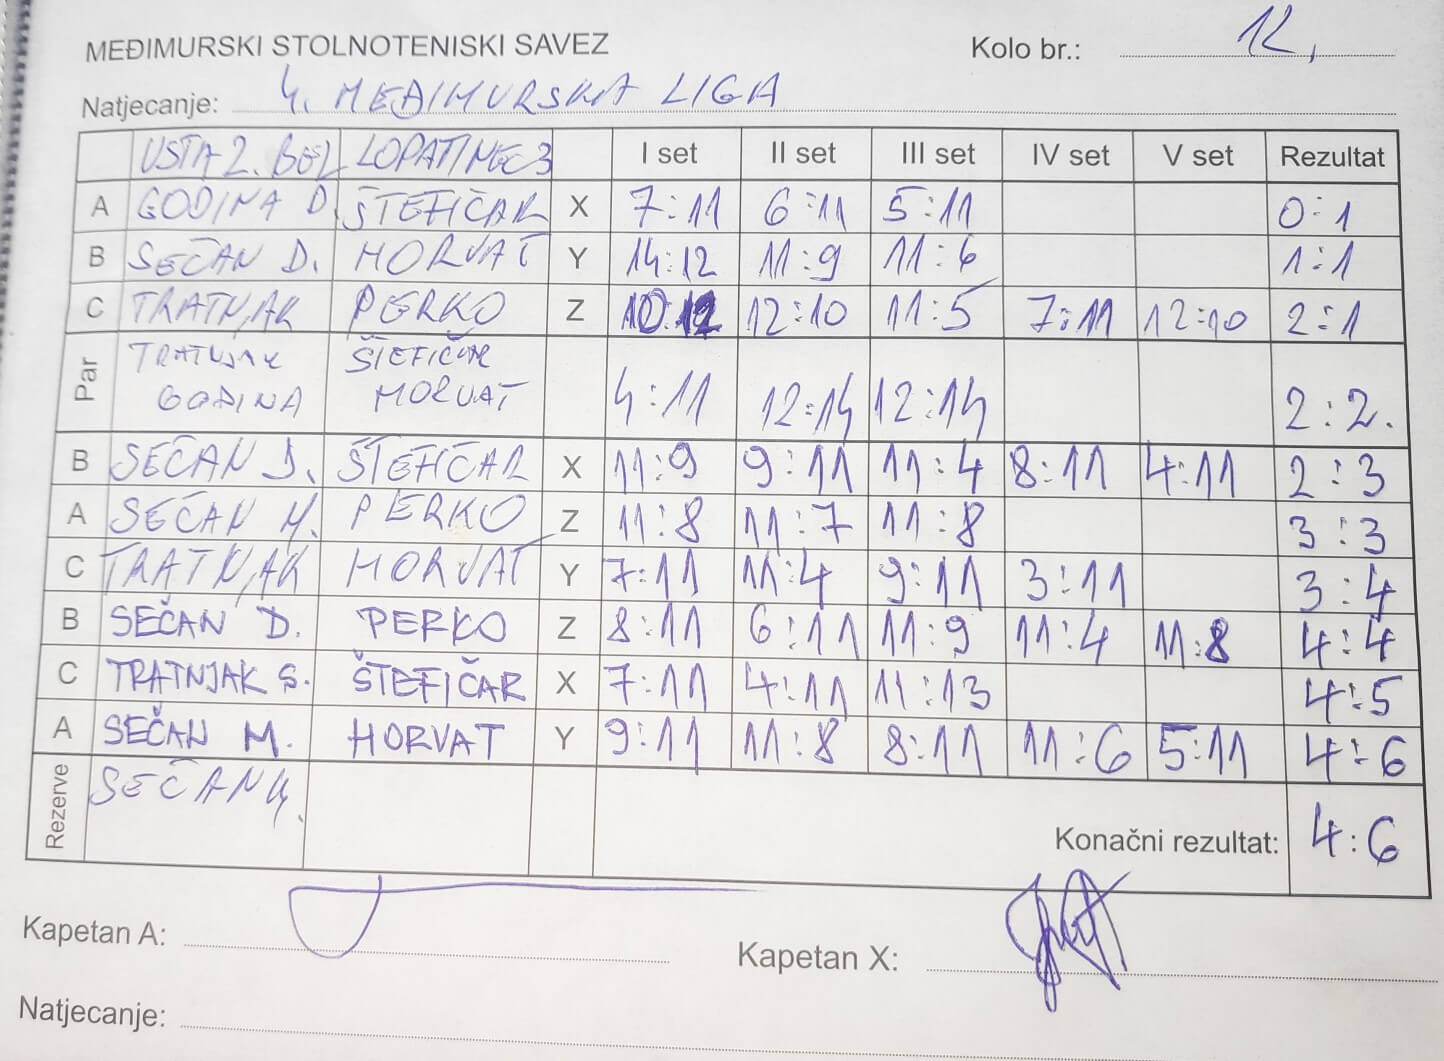 MEĐIMURSKI STOLNOTENISKI SAVEZ Kolo br.: 12.
Natjecanje: 4. MEĐIMURSKA LIGA
USTA 2. BEL LOPATINEC 3 I set II set III set IV set V set Rezultat
A GODINA D. ŠTEFIČAR X 7:11 6:11 5:11 0:1
B SEČAN D. HORVAT Y 14:12 11:9 11:6 1:1
C TRATNJAK PERKO Z 10:12 12:10 11:5 7:11 12:10 2:1
Par TRATNJAK ŠTEFIČAR
GODINA HORVAT 4:11 12:14 12:14 2:2.
B SEČAN D. ŠTEFIČAR X 11:9 9:11 11:4 8:11 4:11 2:3
A SEČAN M. PERKO Z 11:8 11:7 11:8 3:3
C TRATNJAK HORVAT Y 7:11 11:4 9:11 3:11 3:4
B SEČAN D. PERKO Z 8:11 6:11 11:9 11:4 11:8 4:4
C TRATNJAK S. ŠTEFIČAR X 7:11 4:11 11:13 4:5
A SEČAN M. HORVAT Y 9:11 11:8 8:11 11:6 5:11 4:6
Rezerve SEČAN M.
Konačni rezultat: 4:6
Kapetan A:
Kapetan X:
Natjecanje: